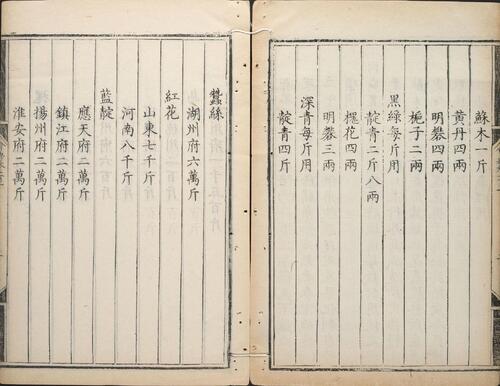 蘇木一斤
黄丹四兩
明礬四兩
梔子二兩
黑綠每斤用
靛青二斤八兩
槐花四兩
明礬三兩
深青每斤用
靛青四斤
蠶絲
湖州府六萬斤
紅花
山東七千斤
河南八千斤
藍靛
應天府二萬斤
鎮江府二萬斤
揚州府二萬斤
淮安府二萬斤